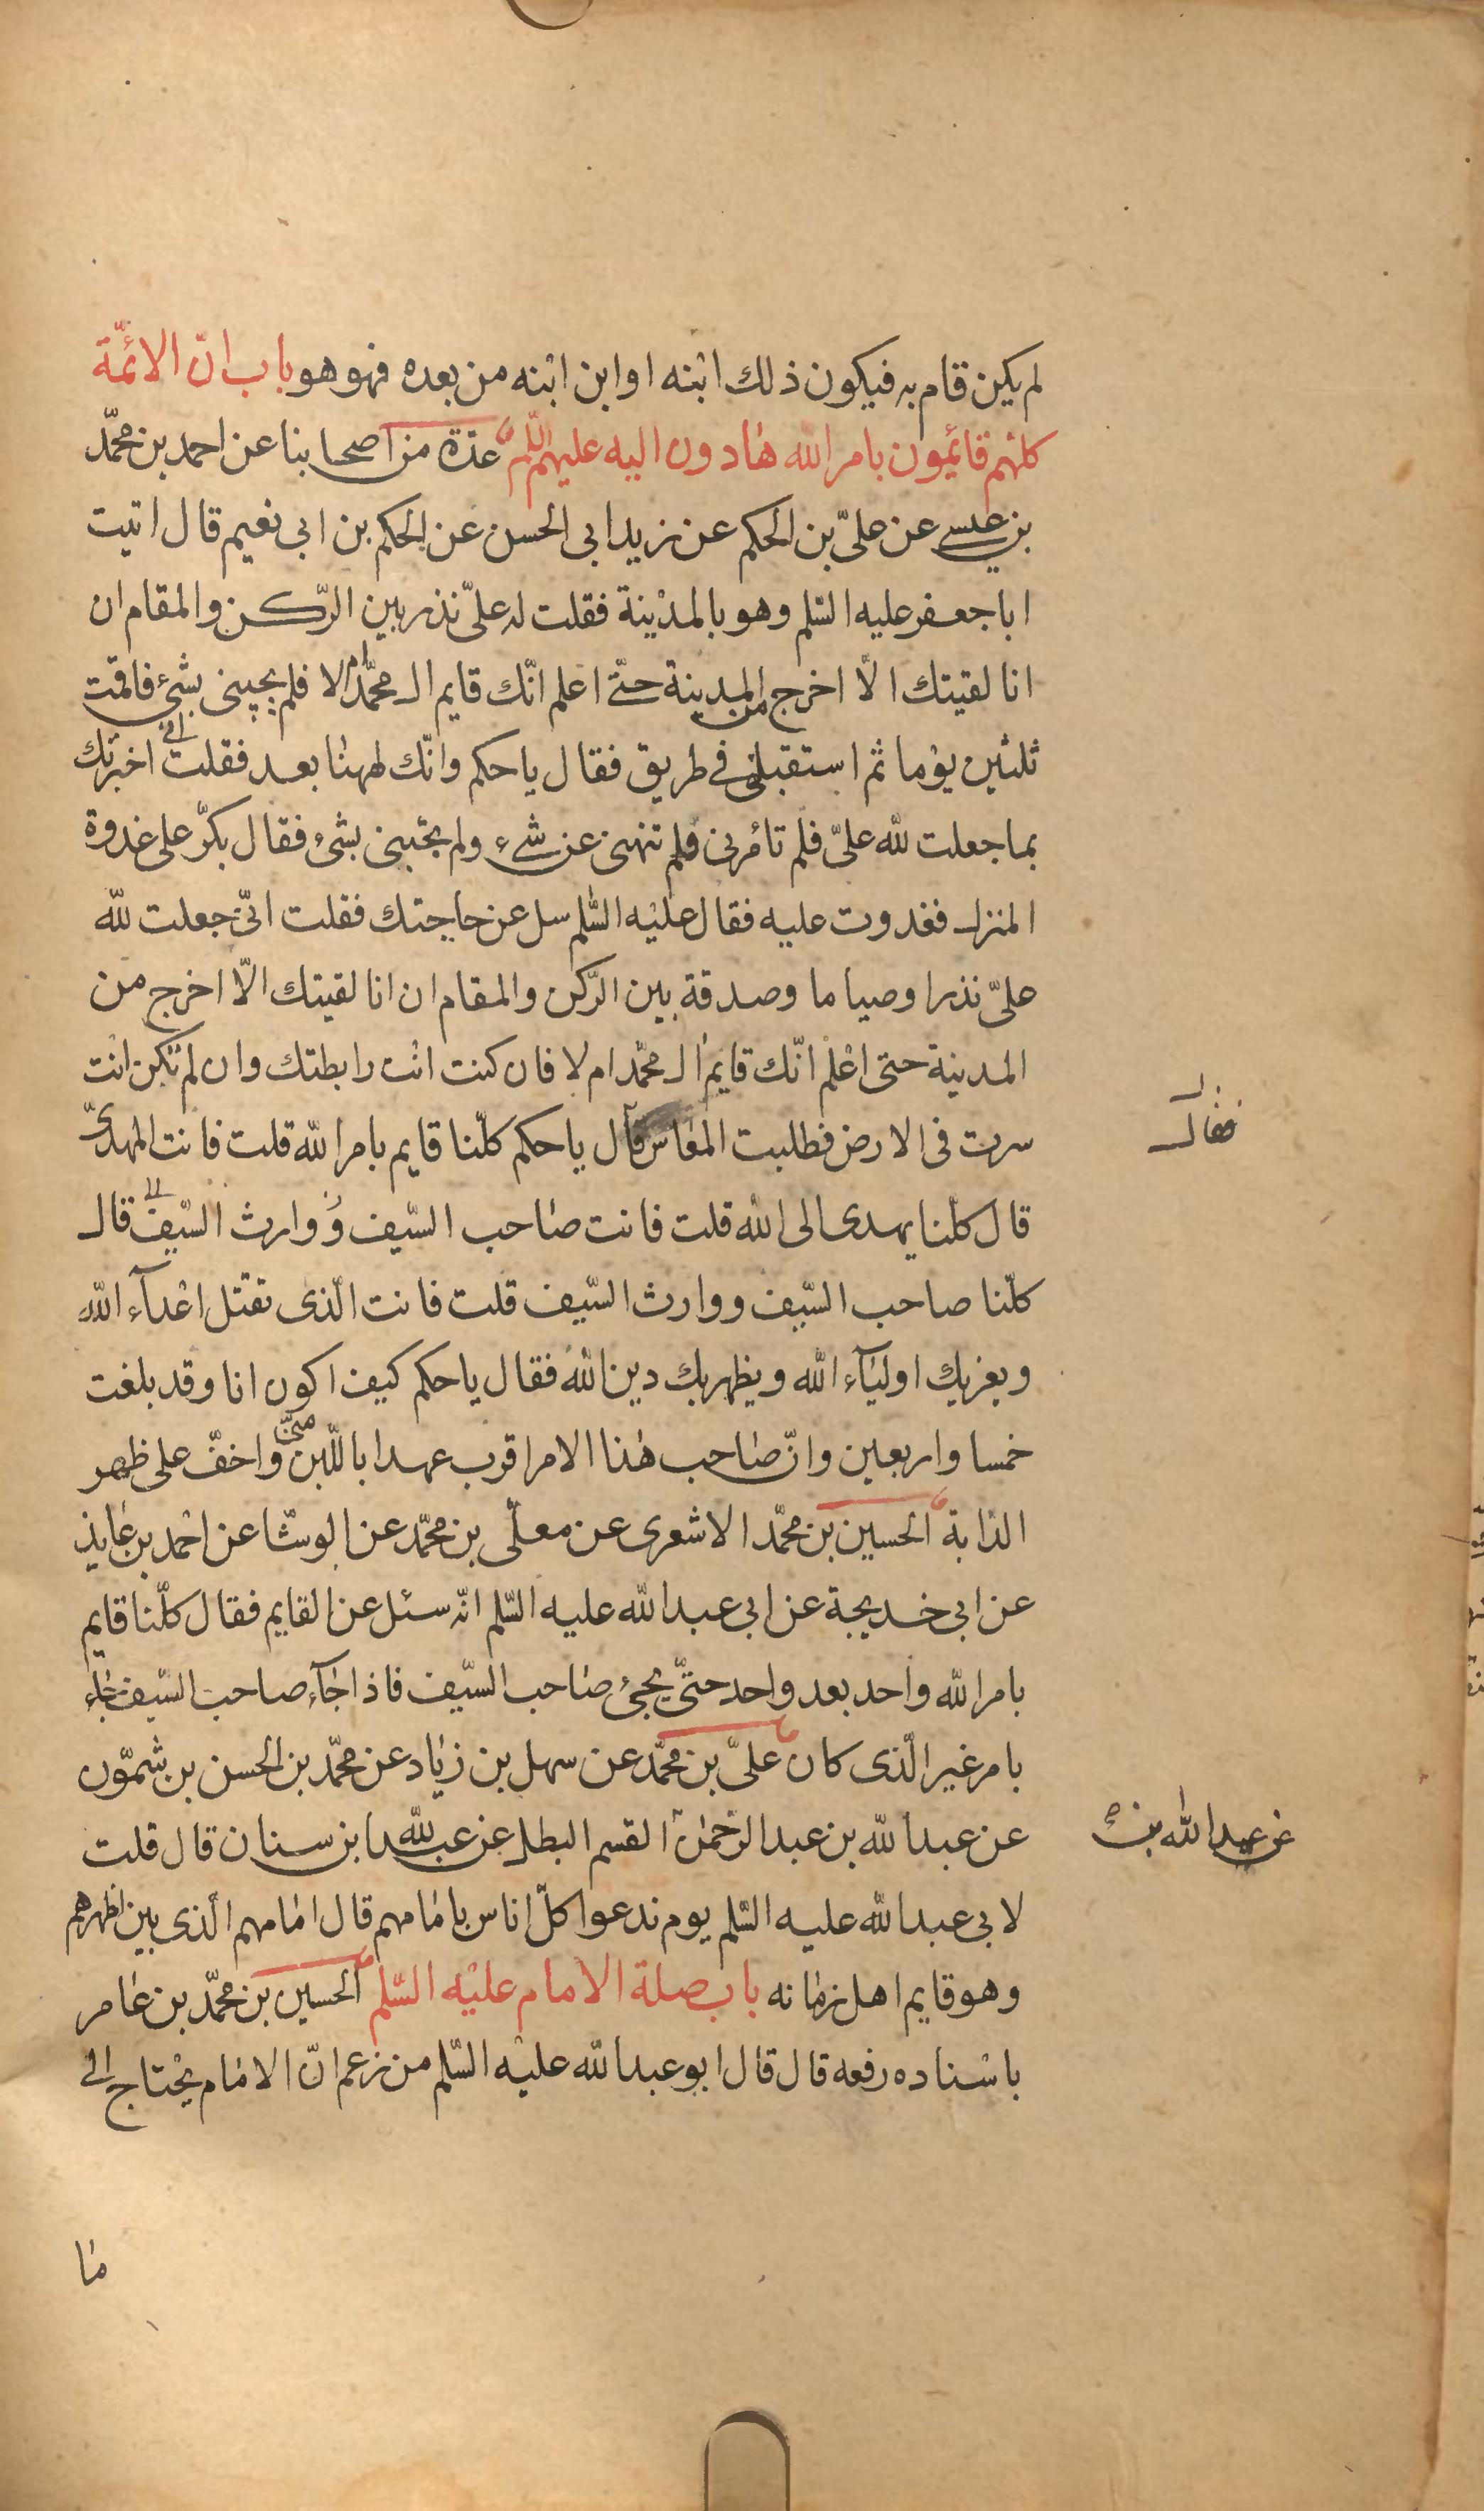 لم يكن قام به فيكون ذلك ابنه او ابن ابنه من بعده فهو هو باب انّ الائمّة
كلهم قائمون بامر الله هادون اليه عليهم السّلم عدّة من اصحابنا عن احمد بن محمّد
بن عيسى عن علىّ بن الحكم عن زيد ابى الحسن عن الحكم بن ابى نعيم قال اتيت
ابا جعفر عليه السّلم وهو بالمدينة فقلت له علىّ نذر بين الرّكن والمقام ان
انا لقيتك الّا اخرج من المدينة حتّى اعلم انّك قايم ال محمّد ام لا فلم يجيبنى بشئ فاقمت
ثلثين يوما ثم استقبلنى فى طريق فقال يا حكم وانّك لههنا بعد فقلت انى اخبرتك
بما جعلت لله علىّ فلم تأمرنى فلم تنهنى عن شىء ولم تجبنى بشئ فقال بكّر على غدوة
المنزل فغدوت عليه فقال عليه السّلم سل عن حاجتك فقلت انّى جعلت لله
علىّ نذرا وصياما وصدقة بين الرّكن والمقام ان انا لقيتك الّا اخرج من
المدينة حتى اعلم انّك قايم ال محمّد ام لا فان كنت انت رابطتك وان لم تكن انت
سرت فى الارض فطلبت المعاش قال يا حكم كلّنا قايم بامر الله قلت فانت المهدىّ
فقال
قال كلّنا يهدى الى الله قلت فانت صاحب السّيف و ووارث السّيف قال
كلّنا صاحب السّيف ووارث السّيف قلت فانت الّذى تقتل اعدآء الله
ويعز بك اوليآء الله ويظهر بك دين الله فقال يا حكم كيف اكون انا وقد بلغت
خمسا واربعين وانّ صاحب هذا الامر اقرب عهدا باللّبن منّى واخفّ على ظهر
الدّابة الحسين بن محمّد الاشعرى عن معلّى بن محمّد عن الوشّا عن احمد بن عايذ
عن ابى خديجة عن ابى عبد الله عليه السّلم انّه سئل عن القايم فقال كلّنا قايم
بامر الله واحد بعد واحد حتّى يجئ صاحب السّيف فاذا جآء صاحب السّيف جاء
بامر غير الّذى كان علىّ بن محمّد عن سهل بن زياد عن محمّد بن الحسن بن شمّون
عن عبد الله بن عبد الرّحمن القسم البطل عن عبد الله ابن سنان قال قلت
عن عبد الله بن
لابى عبد الله عليه السّلم يوم ندعوا كلّ اناس بامامهم قال امامهم الّذى بين اظهرهم
وهو قايم اهل زمانه باب صلة الامام عليه السّلم الحسين بن محمّد بن عامر
باسناده رفعه قال قال ابو عبد الله عليه السّلم من زعم انّ الامام يحتاج الى
ما